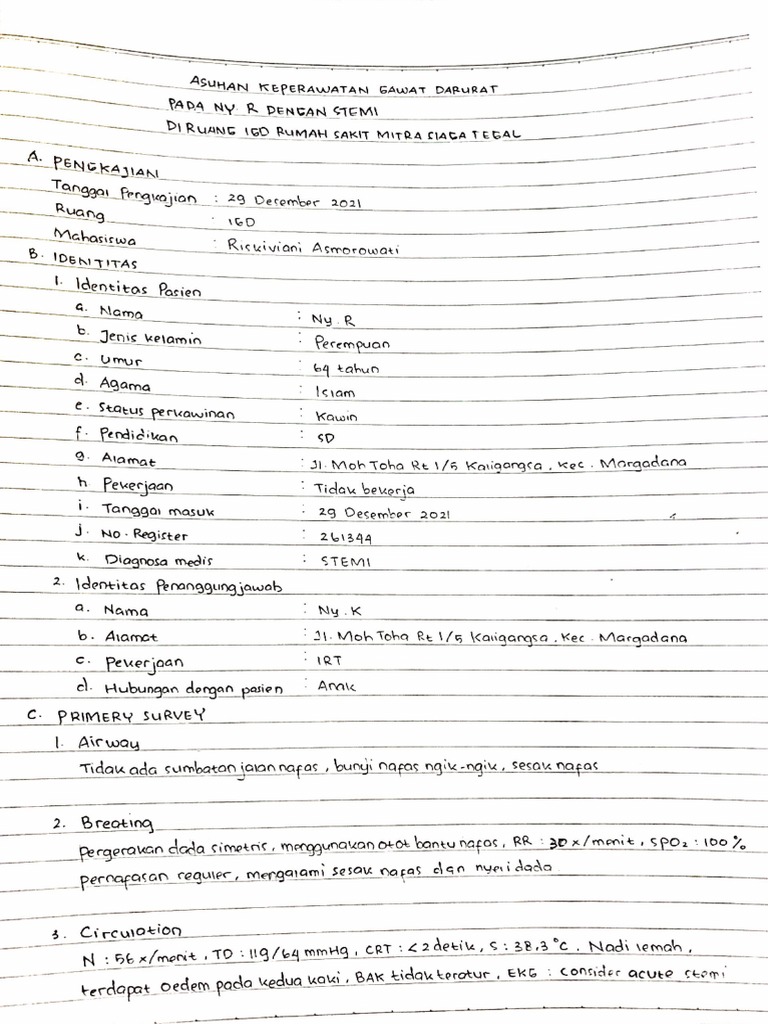 ASUHAN KEPERAWATAN GAWAT DARURAT
PADA NY. R DENGAN STEMI
DI RUANG IGD RUMAH SAKIT MITRA SIAGA TEGAL
A. PENGKAJIAN
Tanggal Pengkajian : 29 Desember 2021
Ruang : IGD
Mahasiswa : Riskiviani Asmorowati
B. IDENTITAS
1. Identitas Pasien
a. Nama : Ny. R
b. Jenis kelamin : Perempuan
c. Umur : 64 tahun
d. Agama : Islam
e. Status perkawinan : Kawin
f. Pendidikan : SD
g. Alamat : Jl. Moh Toha Rt 1/5 Kaligangsa, Kec. Margadana
h. Pekerjaan : Tidak bekerja
i. Tanggal masuk : 29 Desember 2021
j. No. Register : 261344
k. Diagnosa medis : STEMI
2. Identitas Penanggungjawab
a. Nama : Ny. K
b. Alamat : Jl. Moh Toha Rt 1/5 Kaligangsa, Kec. Margadana
c. Pekerjaan : IRT
d. Hubungan dengan pasien : Anak
C. PRIMERY SURVEY
1. Airway
Tidak ada sumbatan jalan nafas, bunyi nafas ngik-ngik, sesak nafas
2. Breating
pergerakan dada simetris, menggunakan otot bantu nafas, RR : 30 x/menit, SPO2 : 100%
pernafasan reguler, mengalami sesak nafas dan nyeri dada
3. Circulation
N : 56 x/menit, TD : 119/64 mmHg, CRT : <2 detik, S : 38,3 °C. Nadi lemah,
terdapat oedem pada kedua kaki, BAK tidak teratur, EKG : consider acute stemi